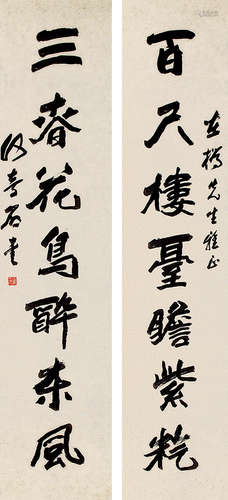 百尺樓臺瞻紫氣
橋先生雅正
三春花鳥醉東風